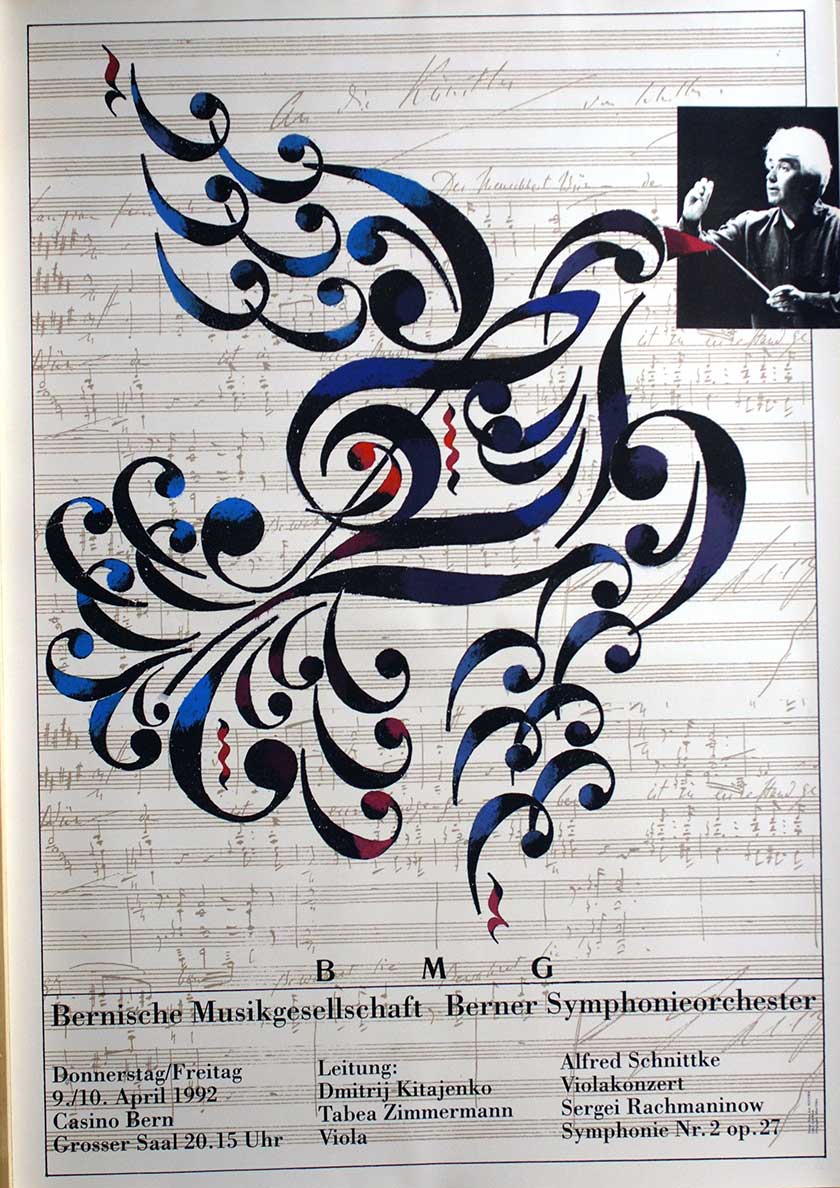 An die Künstler
B M G
Bernische Musikgesellschaft Berner Symphonieorchester
Donnerstag/Freitag
9./10. April 1992
Casino Bern
Grosser Saal 20.15 Uhr
Leitung:
Dmitrij Kitajenko
Tabea Zimmermann
Viola
Alfred Schnittke
Violakonzert
Sergei Rachmaninow
Symphonie Nr. 2 op. 27